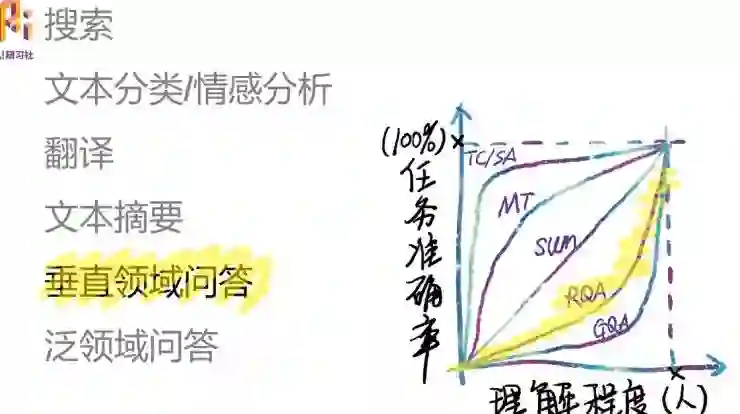 AI研习社
搜索
文本分类/情感分析
翻译
文本摘要
垂直领域问答
泛领域问答
(100%)
任务准确率
TC/SA
MT
SUM
RQA
GQA
理解程度(人)